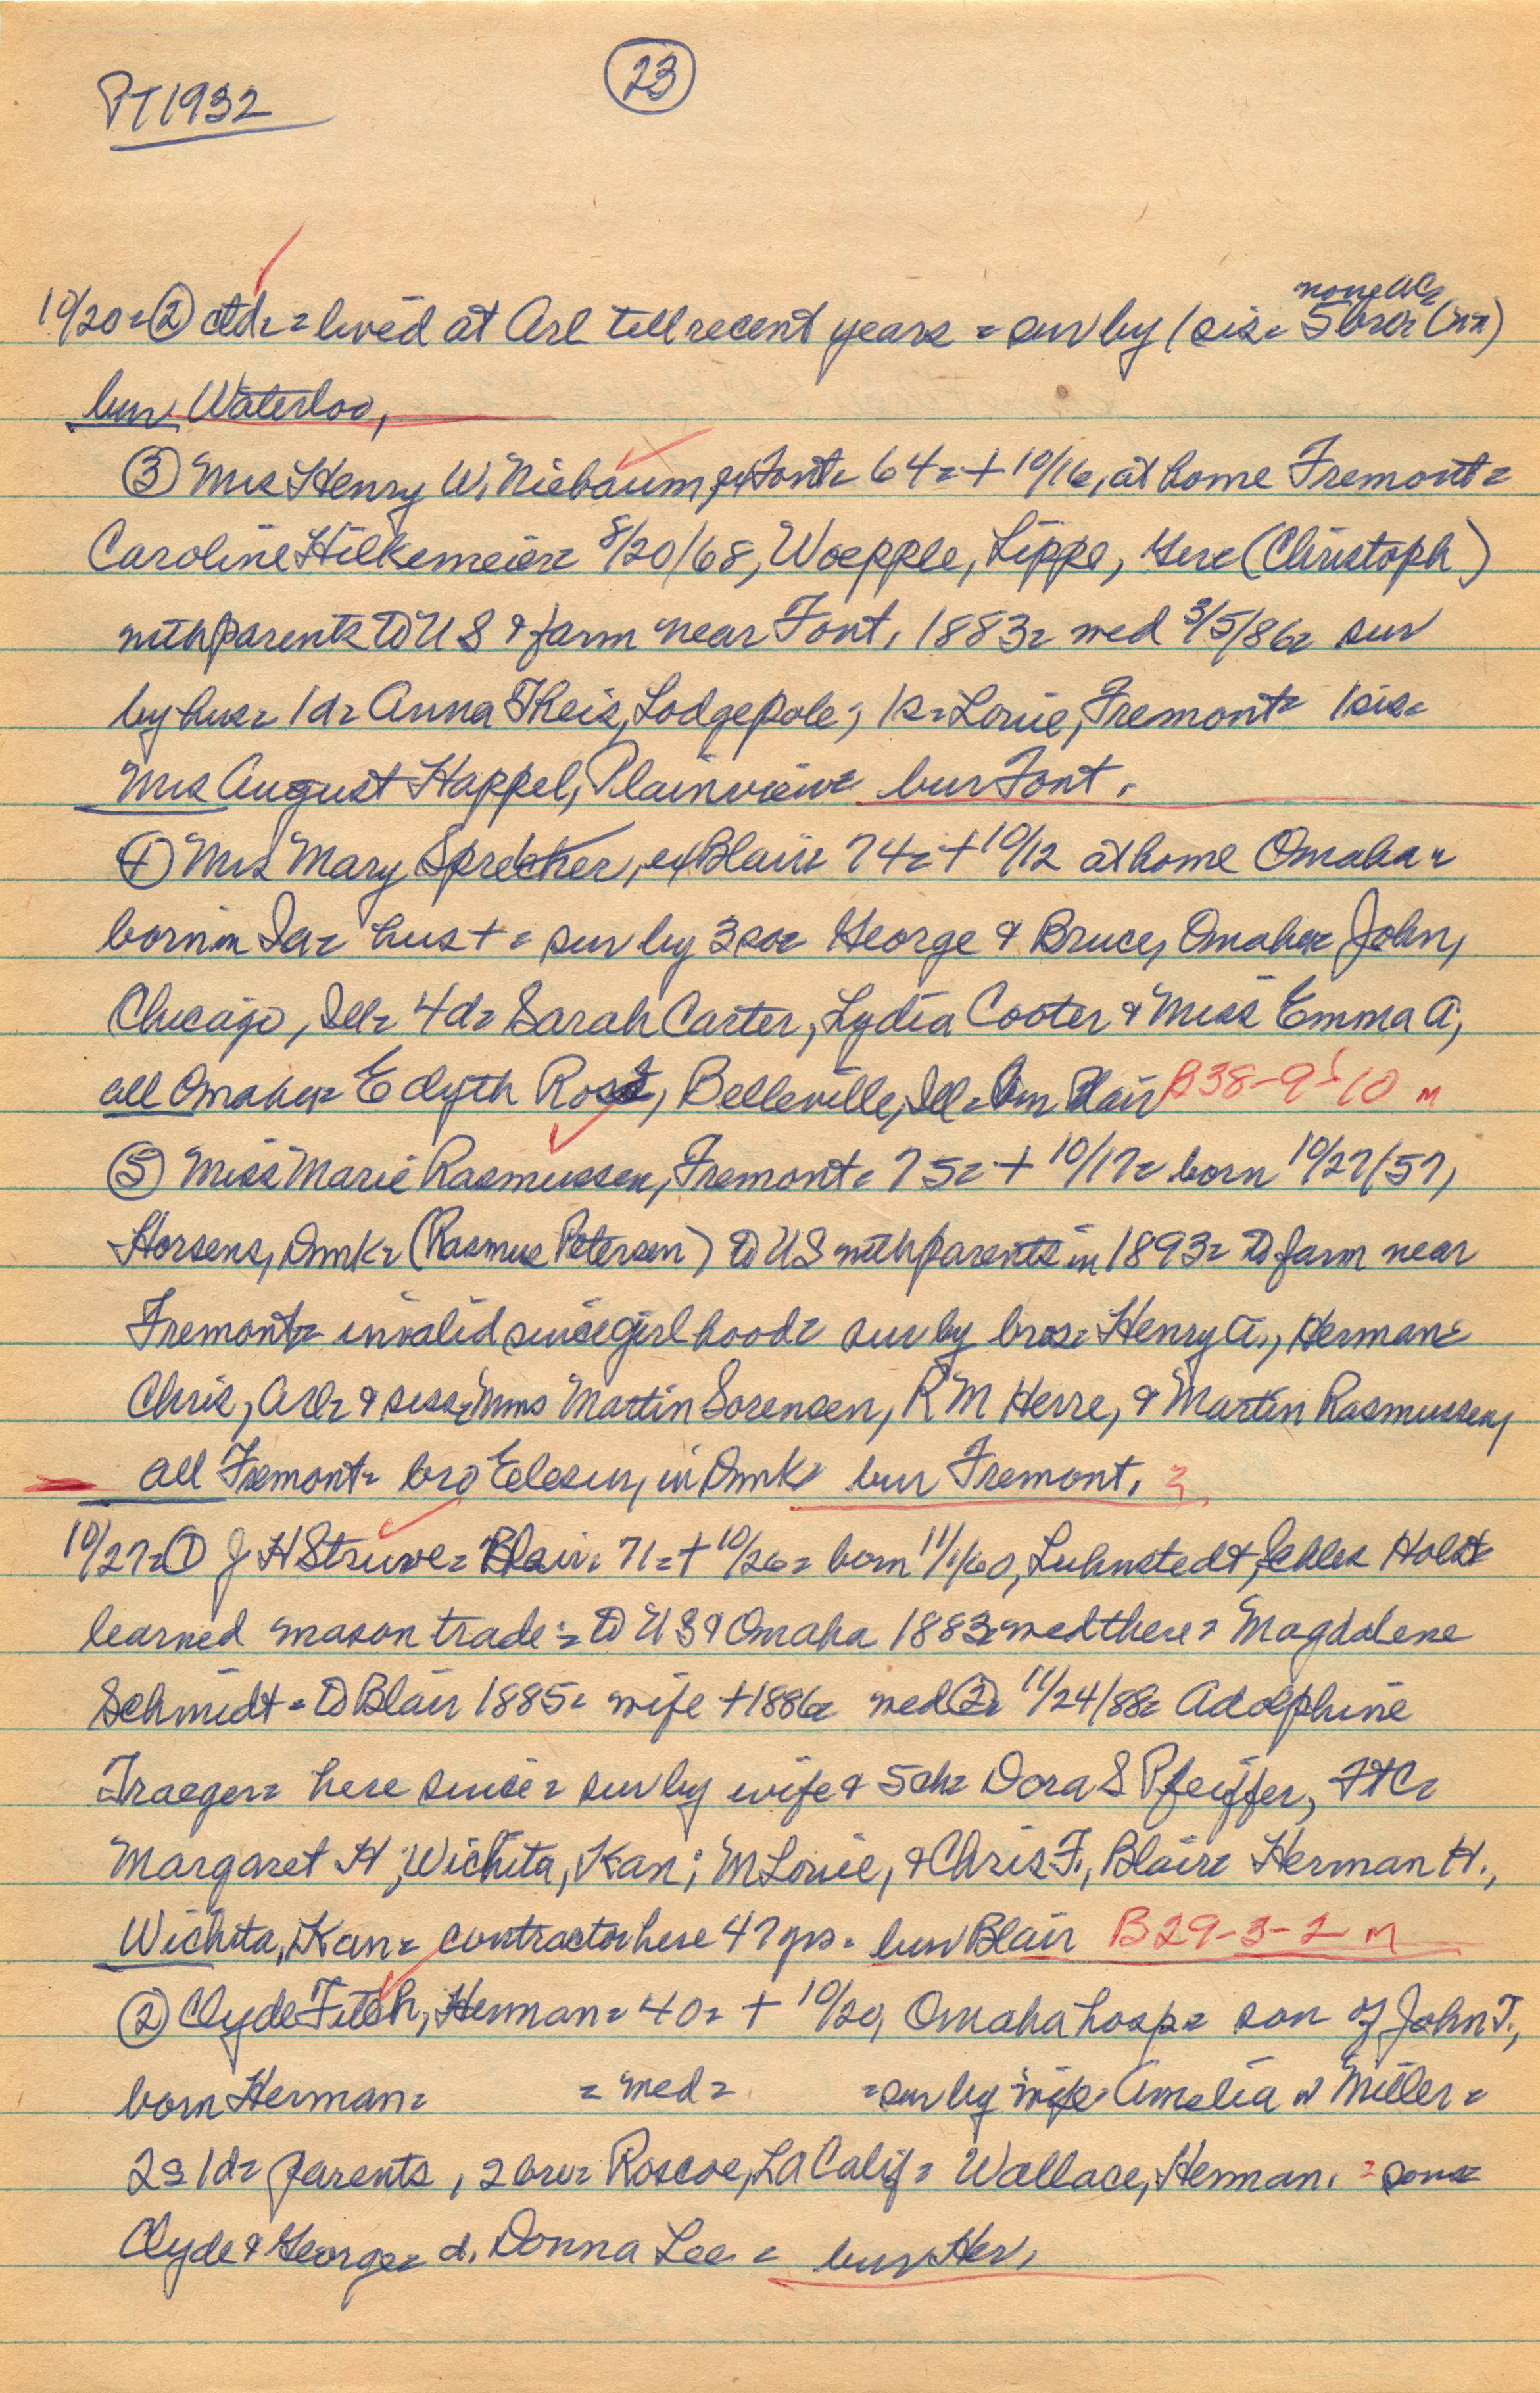 23
PT 1932
none WC
10/20= ② ctd.= lived at Arl till recent years = sur by 1 sis= 5 bro= (nn)
bur Waterloo,
③ Mrs Henry W. Niebaum, ex Font= 64= + 10/16, at home Fremont=
Caroline Hilkemeier= 8/20/68, Woepple, Lippe, Ger= (Christoph)
with parents to US & farm near Font. 1883= med 3/5/86= sur
by hus= 1d= Anna Theis, Lodgepole; 1s= Louie, Fremont= 1sis=
Mrs August Happel, Plainview= bur Font.
④ Mrs Mary Sprecher, ex Blair= 74= + 10/12 at home Omaha=
born in Ia= hus + = sur by 3so= George & Bruce, Omaha= John,
Chicago, Ill= 4d= Sarah Carter, Lydia Cooter & Miss Emma A,
all Omaha= Edyth Rose, Belleville, Ill= bur Blair B38-9-10 m
⑤ Miss Marie Rasmussen, Fremont= 75= + 10/17= born 10/27/57,
Horsens, Dmk= (Rasmus Petersen) to US with parents in 1893= to farm near
Fremont= invalid since girlhood= sur by bros= Henry A., Herman=
Chris, Arl= & siss= Mms Martin Sorensen, R M Herre, & Martin Rasmussen,
all Fremont= bro in Dmk= bur Fremont.
10/27= ① J H Struve= Blair= 71= + 10/26= born 11/1/60, Luhnstedt, Schles Holst=
learned mason trade= to US & Omaha 1883= med there= Magdalene
Schmidt= to Blair 1885= wife + 1886= med ②= 11/24/88= Adolphine
Traeger= here since= sur by wife & 5ch= Dora S Pfeiffer, FtC=
Margaret H, Wichita, Kan; M Louie, & Chris F., Blair= Herman H.,
Wichita, Kan= contractor here 47 yrs= bur Blair B29-3-2 m
② Clyde Fitch, Herman= 40= + 10/20, Omaha hosp= son of John T.,
born Herman= = med= =sur by wife= Amelia n Miller=
2s 1d= parents, 2 bro= Roscoe, LA Calif= Wallace, Herman. = sons=
Clyde & George= d. Donna Lee= bur Her.